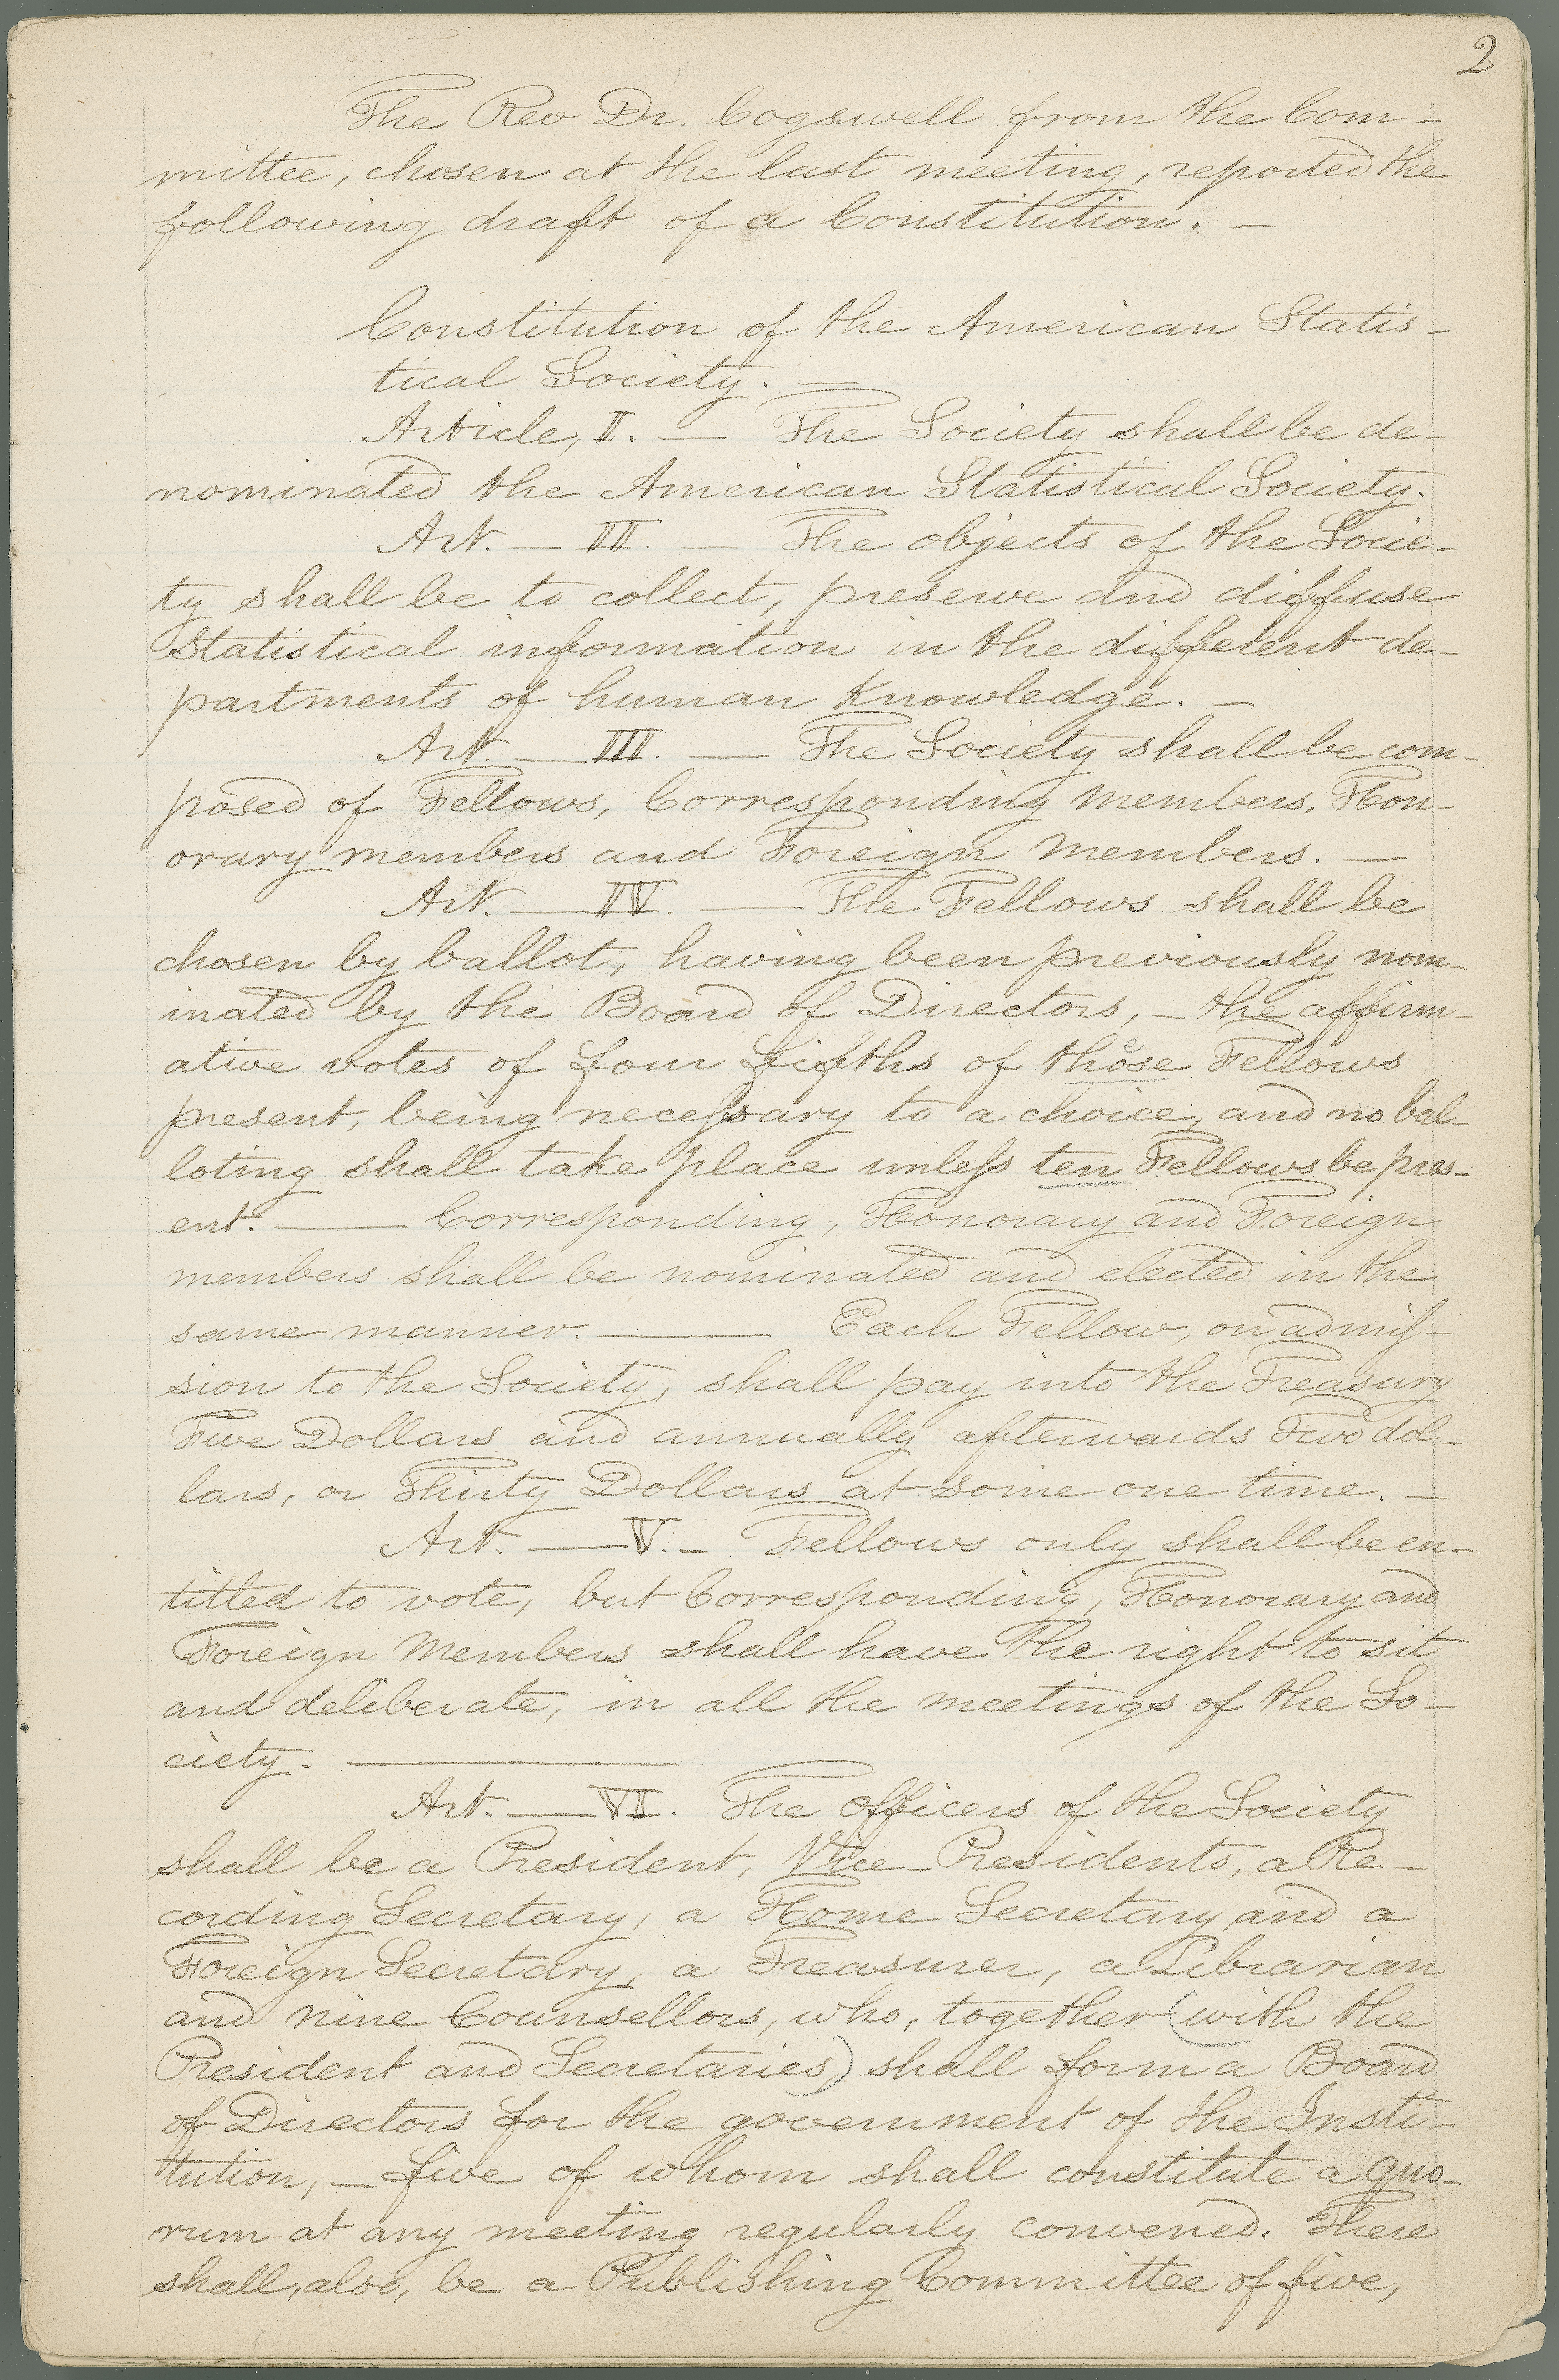 2
The Rev Dr. Cogswell from the Com-
mittee, chosen at the last meeting, reported the
following draft of a Constitution. —
Constitution of the American Statis-
tical Society. —
Article, I. — The Society shall be de-
nominated the American Statistical Society.
Art. — II. — The objects of the Socie-
ty shall be to collect, preserve and diffuse
Statistical information in the different de-
partments of human Knowledge. —
Art. — III. — The Society shall be com-
posed of Fellows, Corresponding Members, Hon-
orary members and Foreign Members. —
Art. — IV. — The Fellows shall be
chosen by ballot, having been previously nom-
inated by the Board of Directors, — the affirm-
ative votes of four fifths of those Fellows
present, being necessary to a choice, and no bal-
loting shall take place unless ten Fellows be pres-
ent. — Corresponding, Honorary and Foreign
members shall be nominated and elected in the
same manner. — Each Fellow, on admis-
sion to the Society, shall pay into the Treasury
Five Dollars and annually afterwards Two dol-
lars, or Thirty Dollars at some one time. —
Art. — V. — Fellows only shall be en-
titled to vote, but Corresponding, Honorary and
Foreign Members shall have the right to sit
and deliberate, in all the meetings of the So-
ciety. —
Art. — VI. The Officers of the Society
shall be a President, Vice-Presidents, a Re-
cording Secretary, a Home Secretary and a
Foreign Secretary, a Treasurer, a Librarian
and nine Counsellors, who, together (with the
President and Secretaries) shall form a Board
of Directors for the government of the Insti-
tution, — five of whom shall constitute a quo-
rum at any meeting regularly convened. There
shall, also, be a Publishing Committee of five,